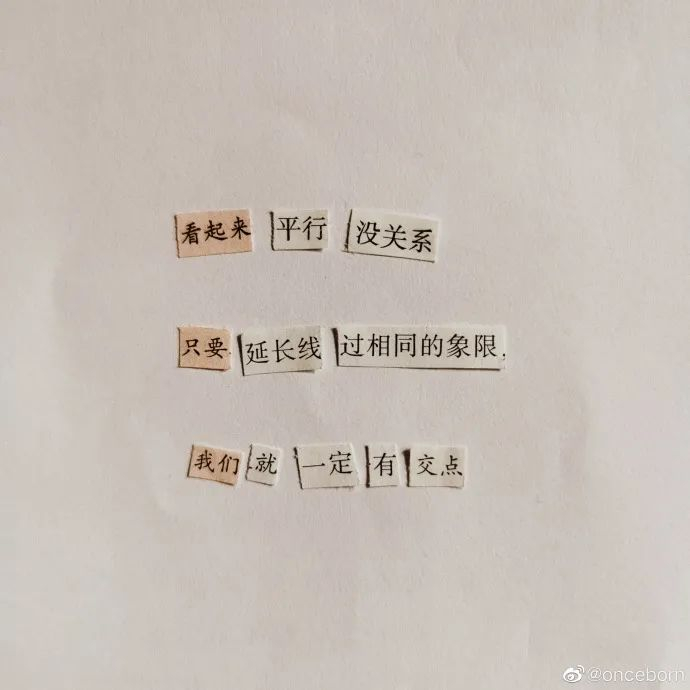 看起来 平行 没关系
只要 延长线 过相同的象限,
我们 就 一定 有 交点
@onceborn